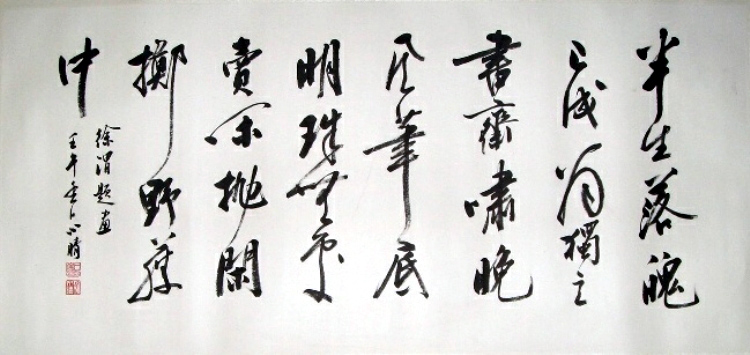 半生落魄
已成翁獨立
書齋嘯晚
风筆底
明珠無處
賣閑抛閑
擲野藤
中
徐渭題畫
壬午